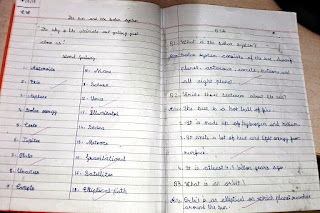 The Sun and the Solar System
"The sky is the ultimate art gallery just above us."
Word Galaxy
1. Asteroids
2. Mars
3. Neptune
4. Solar energy
5. Earth
6. Jupiter
7. Pluto
8. Universe
9. Example
10. Moon
11. Saturn
12. Venus
13. Illuminated
14. Series
15. Meteors
16. Gravitational
17. Satellites
18. Elliptical path
Q.1. What is the Solar System?
Solar System consists of the sun, dwarf planet, asteroids, comets, meteors and all eight planets.
Q2. Write three sentence about the sun?
The Sun is a hot ball of fire.
1. It is made up of hydrogen and helium.
It emits a lot of heat and light energy from surface.
4. It is almost 4.5 billion years ago.
Q3. What is an orbit?
Ans. Orbit is an elliptical on which planets revolve around the sun.